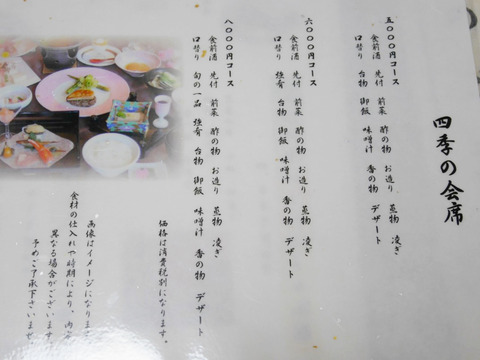 四季の会席
五〇〇〇円コース
食前酒 先付 前菜 酢の物 お造り 蒸物 凌ぎ
口替り 台物 御飯 味噌汁 香の物 デザート
六〇〇〇円コース
食前酒 先付 前菜 酢の物 お造り 蒸物 凌ぎ
口替り 強肴 台物 御飯 味噌汁 香の物 デザート
八〇〇〇円コース
食前酒 先付 前菜 酢の物 お造り 蒸物 凌ぎ
口替り 旬の一品 強肴 台物 御飯 味噌汁 香の物 デザート
価格は消費税別になります。
画像はイメージになります
食材の仕入れや時期により、内容
異なる場合がございます
予めご了承下さいませ